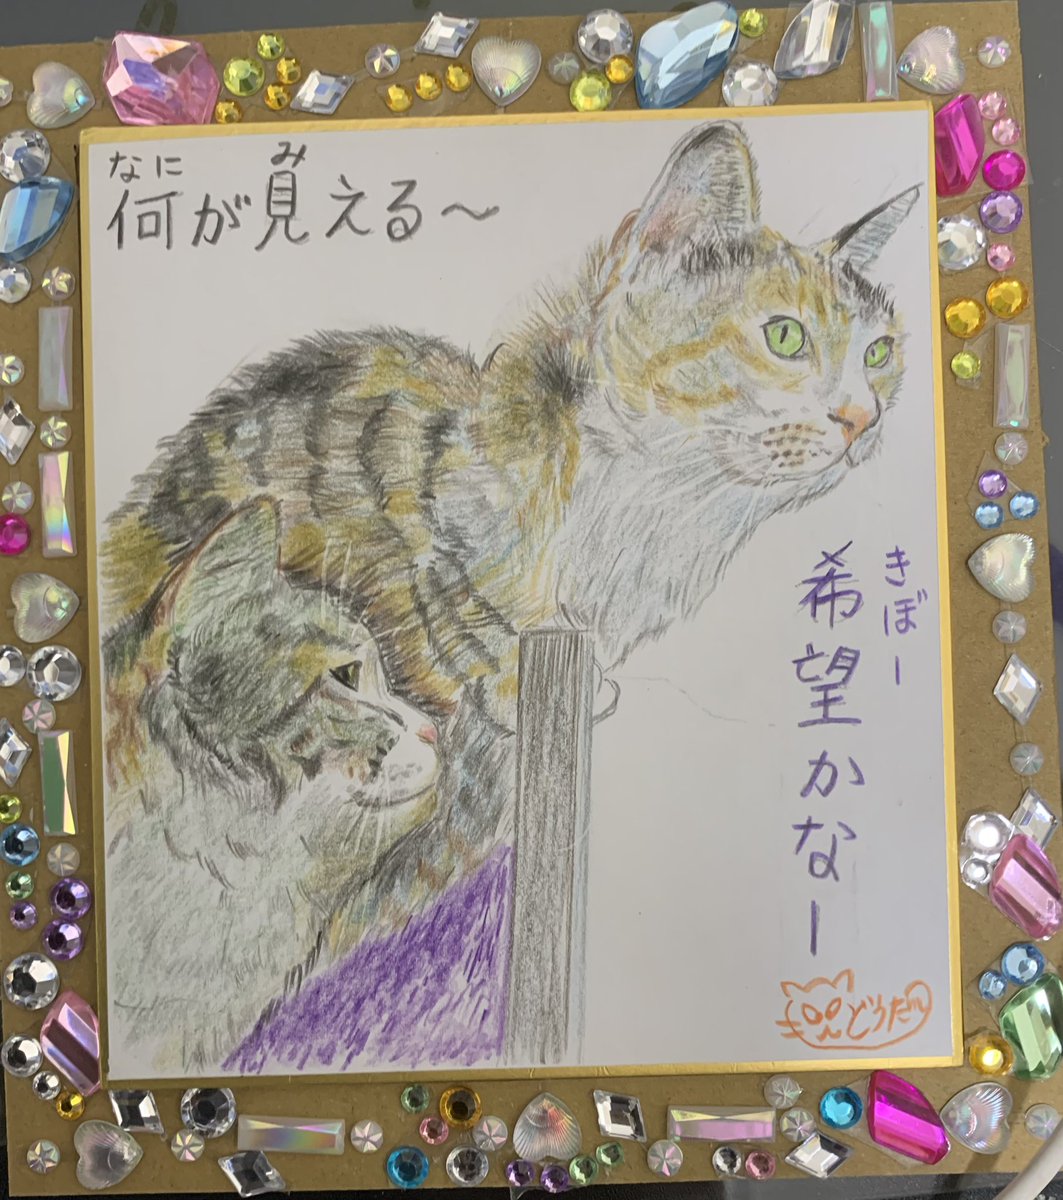 なに み
何が見える〜
きぼー
希望かなー
どうたん